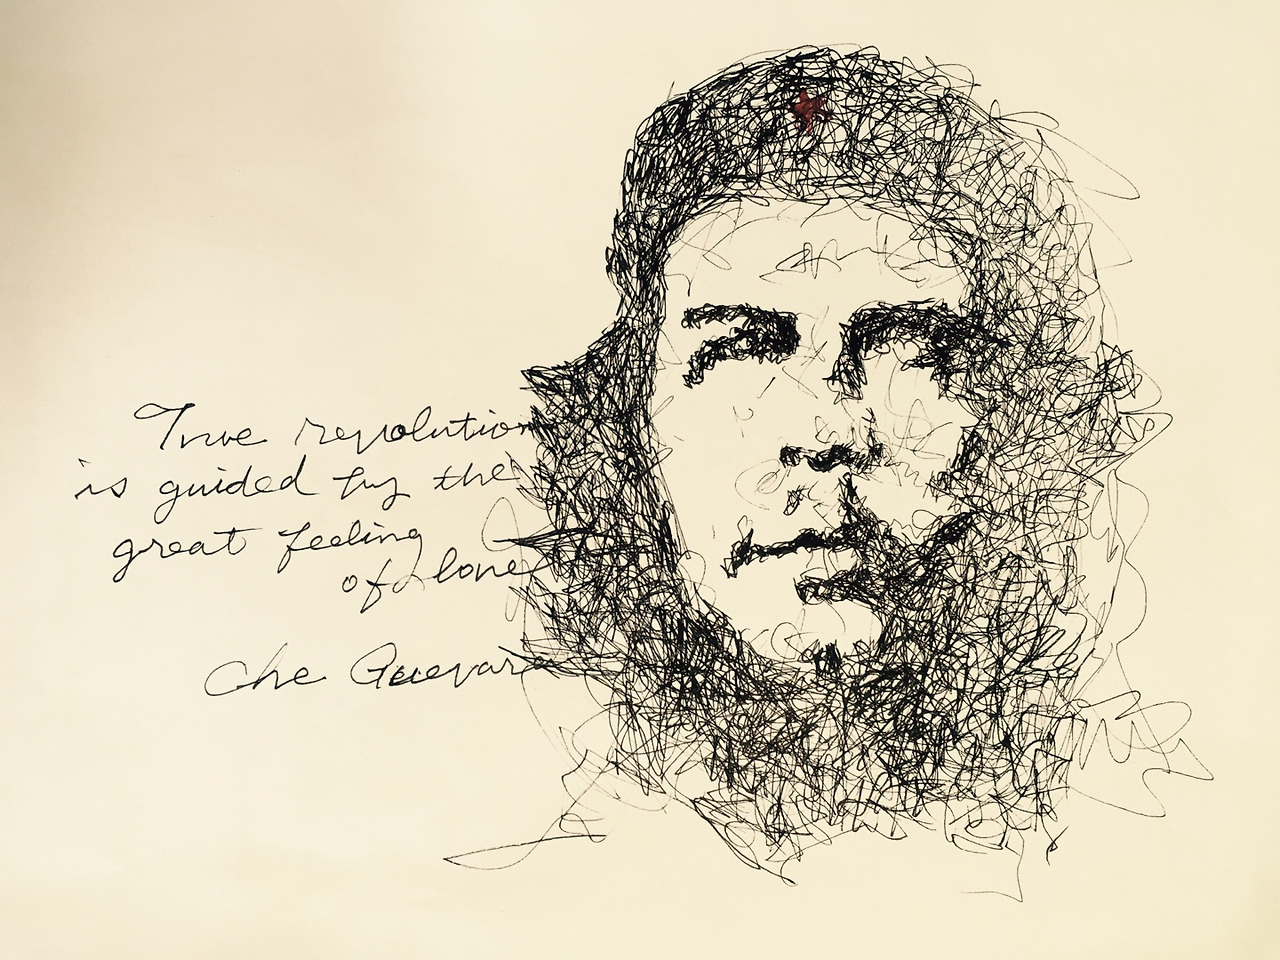 True revolution
is guided by the
great feeling
of love
Che Guevara